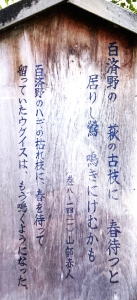 百済野の 萩の古枝に 春待つと
居りし鶯 鳴きにけむかも
巻八・一四三一 山部赤人
百済野のハギの枯れ枝に、春を待って
留っていたウグイスは、もう鳴くようになった